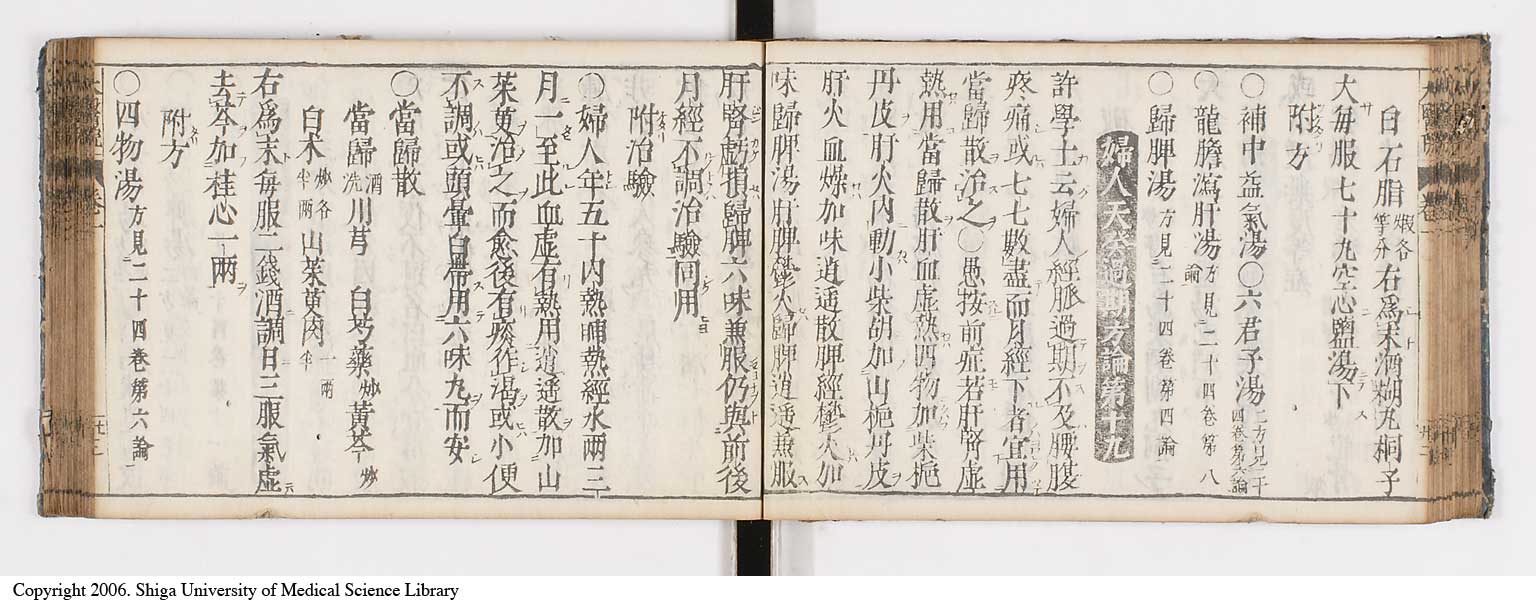 白石脂煆各等分右爲末酒糊丸桐子
大每服七十九空心鹽湯下
附方
○補中益氣湯○六君子湯二方見二十四卷第六論
○龍膽瀉肝湯方見二十四卷第八論
○歸脾湯方見二十四卷第四論
婦人天癸過期方論第十九
許學士云婦人經脈過期不及腰腹
疼痛或七七數盡而月經下者宜用
當歸散治之○愚按前症若肝腎虛
熱用當歸散肝血虛熱四物加柴梔
丹皮肝火內動小柴胡加山梔丹皮
肝火血燥加味逍遙散脾經鬱火加
味歸脾湯肝脾鬱火歸脾逍遙兼服
肝腎虧損歸脾六味兼服仍與前後
月經不調治驗同用
附治驗
○婦人年五十內熱晡熱經水兩三
月一至此血虛有熱用逍遙散加山
茱萸治之而愈後有痰作渴或小便
不調或頭暈白帶用六味丸而安
○當歸散
當歸酒洗川芎 白芍藥炒黃芩炒
白朮炒各半兩山茱萸肉一兩半
右爲末每服二錢酒調日三服氣虛
去芩加桂心一兩
附方
○四物湯方見二十四卷第六論
Copyright 2006. Shiga University of Medical Science Library